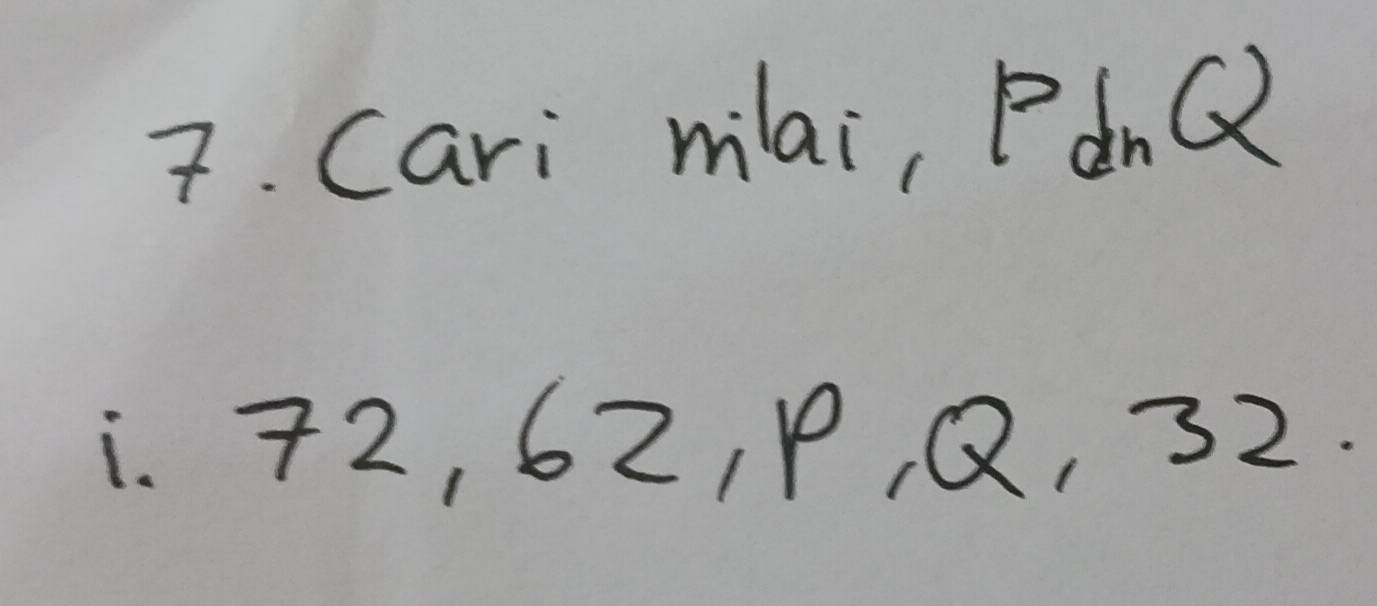 7. Cari nilai, P dn Q
i. 72, 62, P, Q, 32.